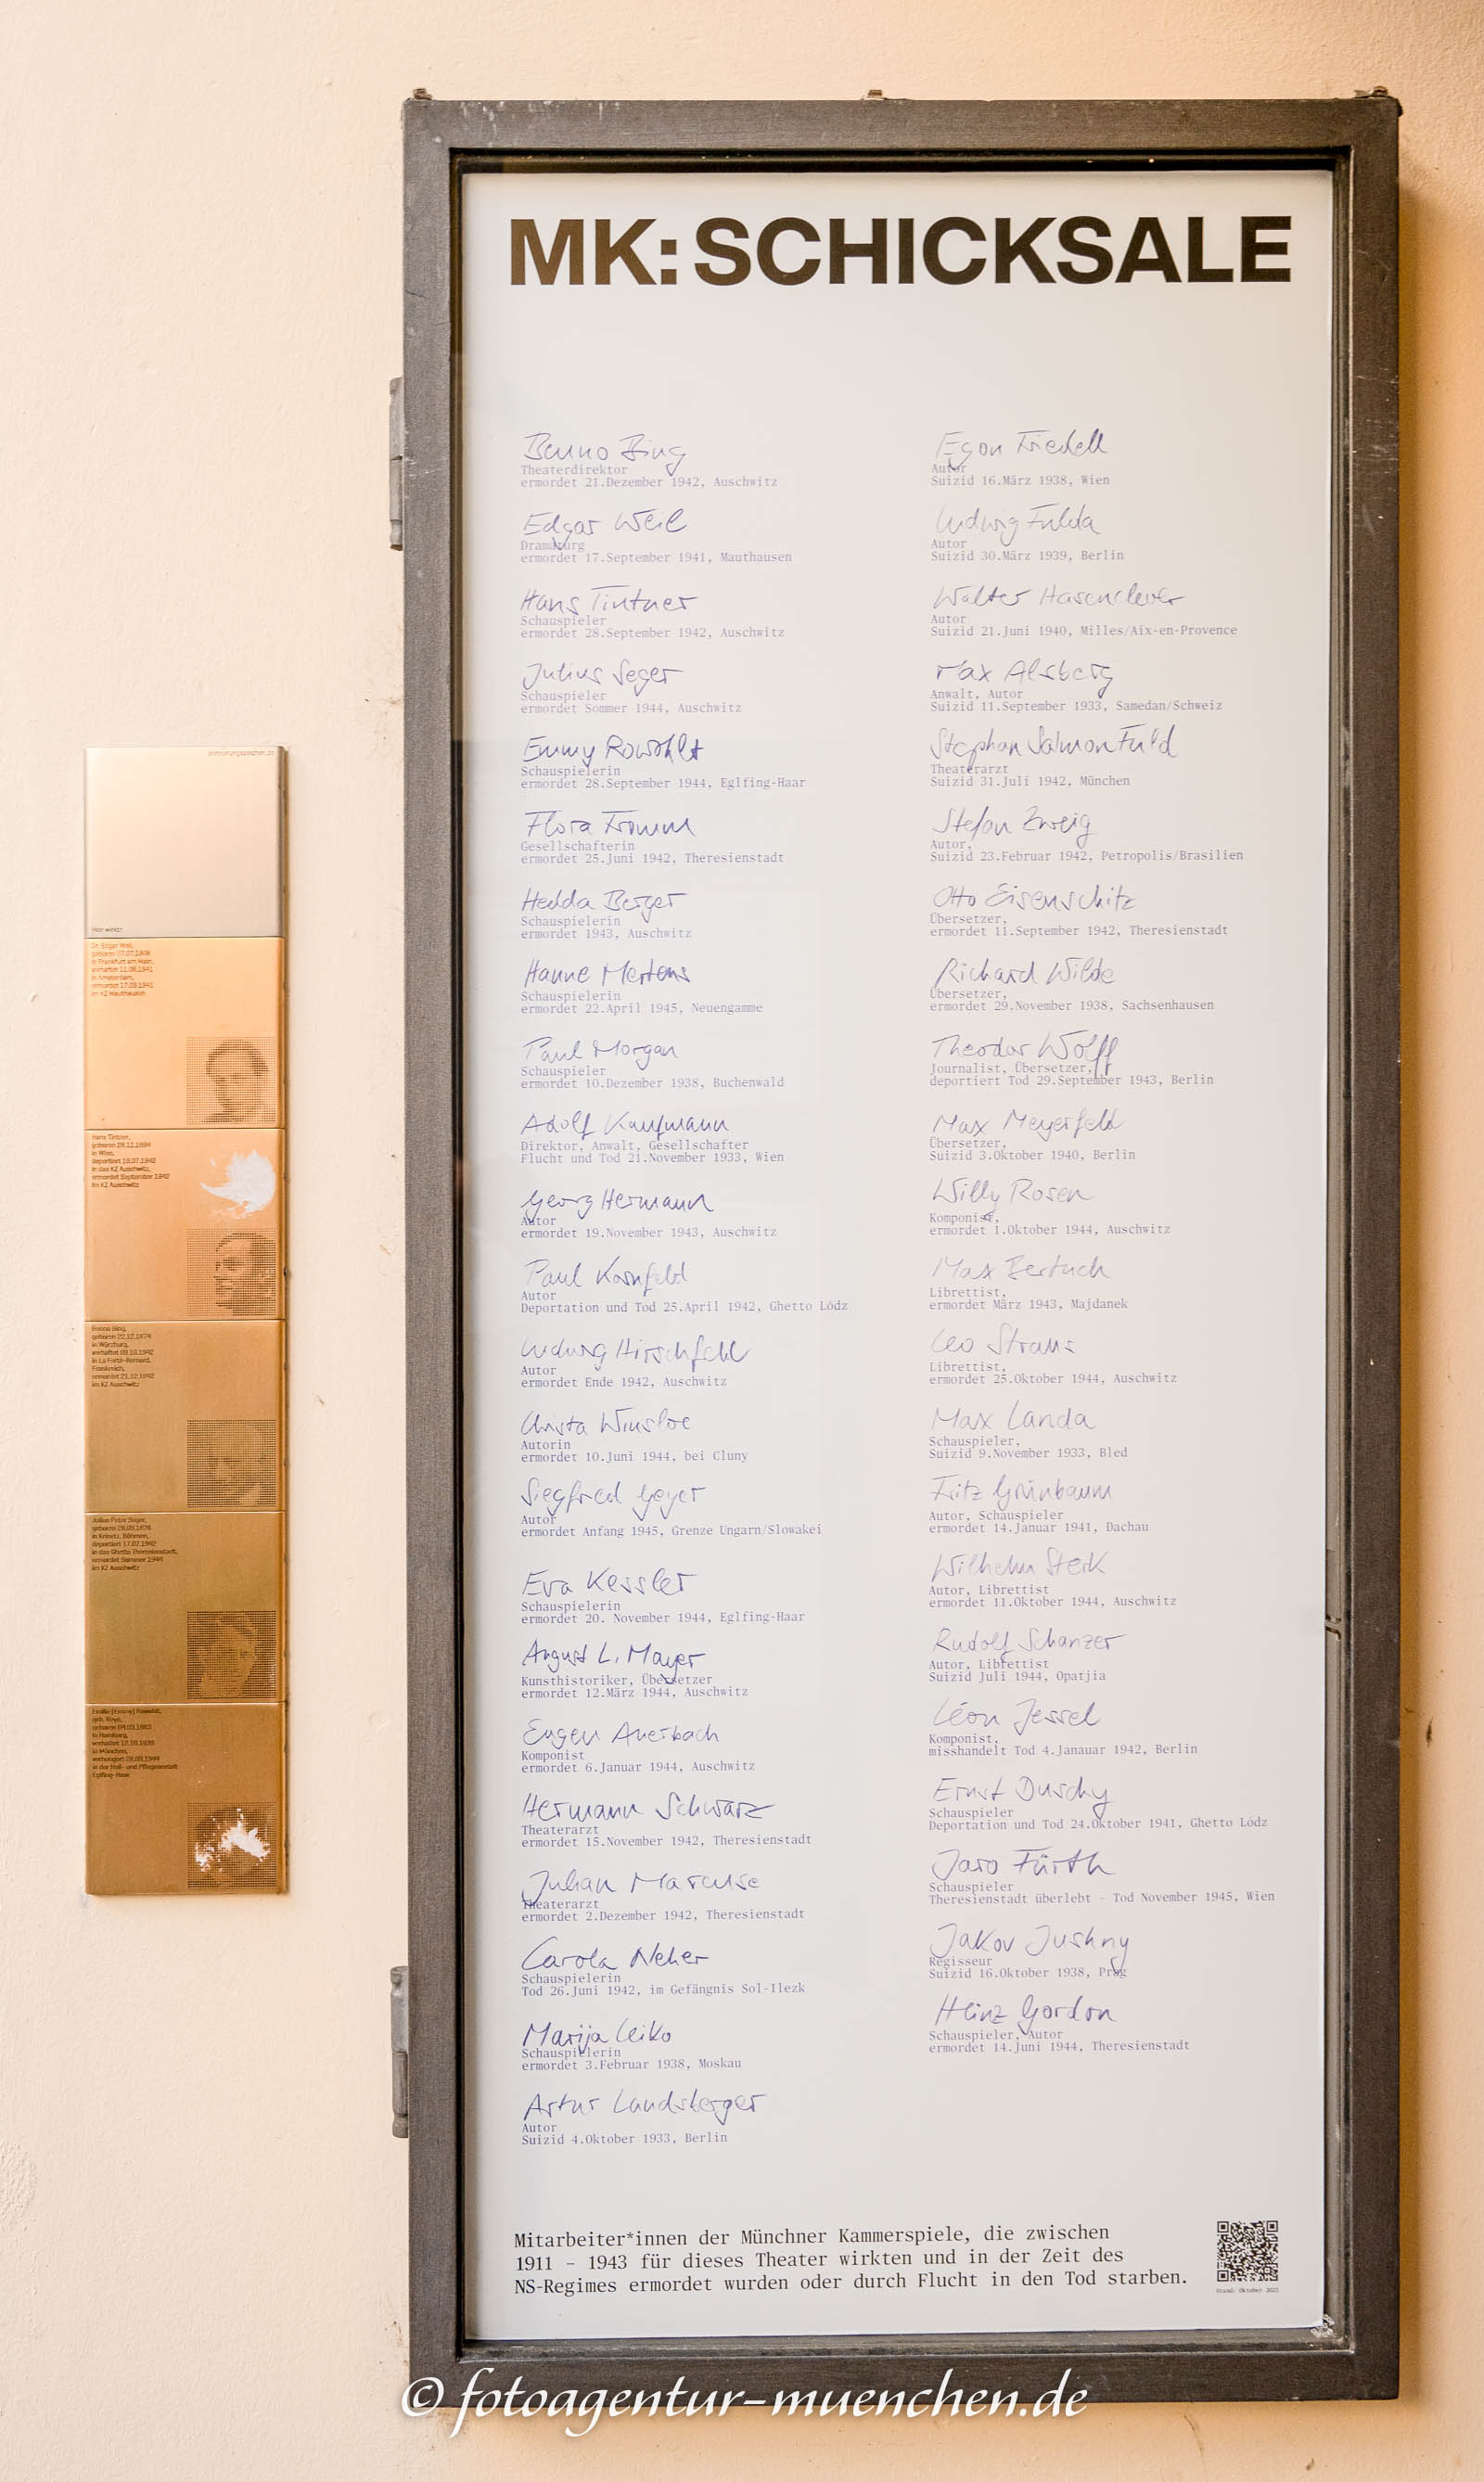 MK: SCHICKSALE
Benno Bing
Theaterdirektor
ermordet 21.Dezember 1942, Auschwitz
Edgar Weil
Dramaturg
ermordet 17.September 1941, Mauthausen
Hans Tintner
Schauspieler
ermordet 28.September 1942, Auschwitz
Julius Seger
Schauspieler
ermordet Sommer 1944, Auschwitz
Emmy Rowohlt
Schauspielerin
ermordet 28.September 1944, Eglfing-Haar
Flora Fromm
Gesellschafterin
ermordet 25.Juni 1942, Theresienstadt
Hedda Berger
Schauspielerin
ermordet 1943, Auschwitz
Hanne Mertens
Schauspielerin
ermordet 22.April 1945, Neuengamme
Paul Morgan
Schauspieler
ermordet 10.Dezember 1938, Buchenwald
Adolf Kaufmann
Direktor, Anwalt, Gesellschafter
Flucht und Tod 21.November 1933, Wien
Georg Hermann
Autor
ermordet 19.November 1943, Auschwitz
Paul Kornfeld
Autor
Deportation und Tod 25.April 1942, Ghetto Lódz
Ludwig Hirschfeld
Autor
ermordet Ende 1942, Auschwitz
Christa Winsloe
Autorin
ermordet 10.Juni 1944, bei Cluny
Siegfried Geyer
Autor
ermordet Anfang 1945, Grenze Ungarn/Slowakei
Eva Kessler
Schauspielerin
ermordet 20. November 1944, Eglfing-Haar
August L. Mayer
Kunsthistoriker, Übersetzer
ermordet 12.März 1944, Auschwitz
Eugen Auerbach
Komponist
ermordet 6.Januar 1944, Auschwitz
Hermann Schwarz
Theaterarzt
ermordet 15.November 1942, Theresienstadt
Julian Marcuse
Theaterarzt
ermordet 2.Dezember 1942, Theresienstadt
Carola Neher
Schauspielerin
Tod 26.Juni 1942, im Gefängnis Sol-Ilezk
Marija Leiko
Schauspielerin
ermordet 3.Februar 1938, Moskau
Artur Landsberger
Autor
Suizid 4.Oktober 1933, Berlin
Egon Friedell
Autor
Suizid 16.März 1938, Wien
Ludwig Fulda
Autor
Suizid 30.März 1939, Berlin
Walter Hasenclever
Autor
Suizid 21.Juni 1940, Milles/Aix-en-Provence
Max Alsberg
Anwalt, Autor
Suizid 11.September 1933, Samedan/Schweiz
Stephan Salmon Fuld
Theaterarzt
Suizid 31.Juli 1942, München
Stefan Zweig
Autor,
Suizid 23.Februar 1942, Petropolis/Brasilien
Otto Eisenschitz
Übersetzer,
ermordet 11.September 1942, Theresienstadt
Richard Wilde
Übersetzer,
ermordet 29.November 1938, Sachsenhausen
Theodor Wolff
Journalist, Übersetzer,
deportiert Tod 29.September 1943, Berlin
Max Meyerfeld
Übersetzer,
Suizid 3.Oktober 1940, Berlin
Willy Rosen
Komponist,
ermordet 1.Oktober 1944, Auschwitz
Max Bertuch
Librettist,
ermordet März 1943, Majdanek
Leo Straus
Librettist,
ermordet 25.Oktober 1944, Auschwitz
Max Landa
Schauspieler,
Suizid 9.November 1933, Bled
Fritz Grünbaum
Autor, Schauspieler
ermordet 14.Januar 1941, Dachau
Wilhelm Sterk
Autor, Librettist
ermordet 11.Oktober 1944, Auschwitz
Rudolf Schanzer
Autor, Librettist
Suizid Juli 1944, Opatjia
Léon Jessel
Komponist,
misshandelt Tod 4.Janauar 1942, Berlin
Ernst Duschy
Schauspieler
Deportation und Tod 24.Oktober 1941, Ghetto Lódz
Jaro Fürth
Schauspieler
Theresienstadt überlebt - Tod November 1945, Wien
Jakov Jushny
Regisseur
Suizid 16.Oktober 1938, Prag
Heinz Gordon
Schauspieler, Autor
ermordet 14.Juni 1944, Theresienstadt
Mitarbeiter*innen der Münchner Kammerspiele, die zwischen
1911 - 1943 für dieses Theater wirkten und in der Zeit des
NS-Regimes ermordet wurden oder durch Flucht in den Tod starben.
Stand: Oktober 2023
Hier wirkte:
Dr. Edgar Weil,
in Frankfurt am Main,
verhaftet 11.06.1941
in Amsterdam,
ermordet 17.09.1941
im KZ Mauthausen
Hans Tintner,
geboren 28.11.1894
in Wien,
deportiert 19.07.1942
in das KZ Auschwitz,
ermordet September 1942
im KZ Auschwitz
Benno Bing,
geboren 22.12.1874
in Würzburg,
verhaftet 09.10.1942
in La Ferté-Bernard,
Frankreich,
ermordet 21.12.1942
im KZ Auschwitz
Julius Peter Seger,
deportiert 17.07.1942
in das Ghetto Theresienstadt,
ermordet Sommer 1944
im KZ Auschwitz
in Hamburg,
in München,
verhungert 28.09.1944
in der Heil- und Pflegeanstalt
Eglfing-Haar
© fotoagentur-muenchen.de